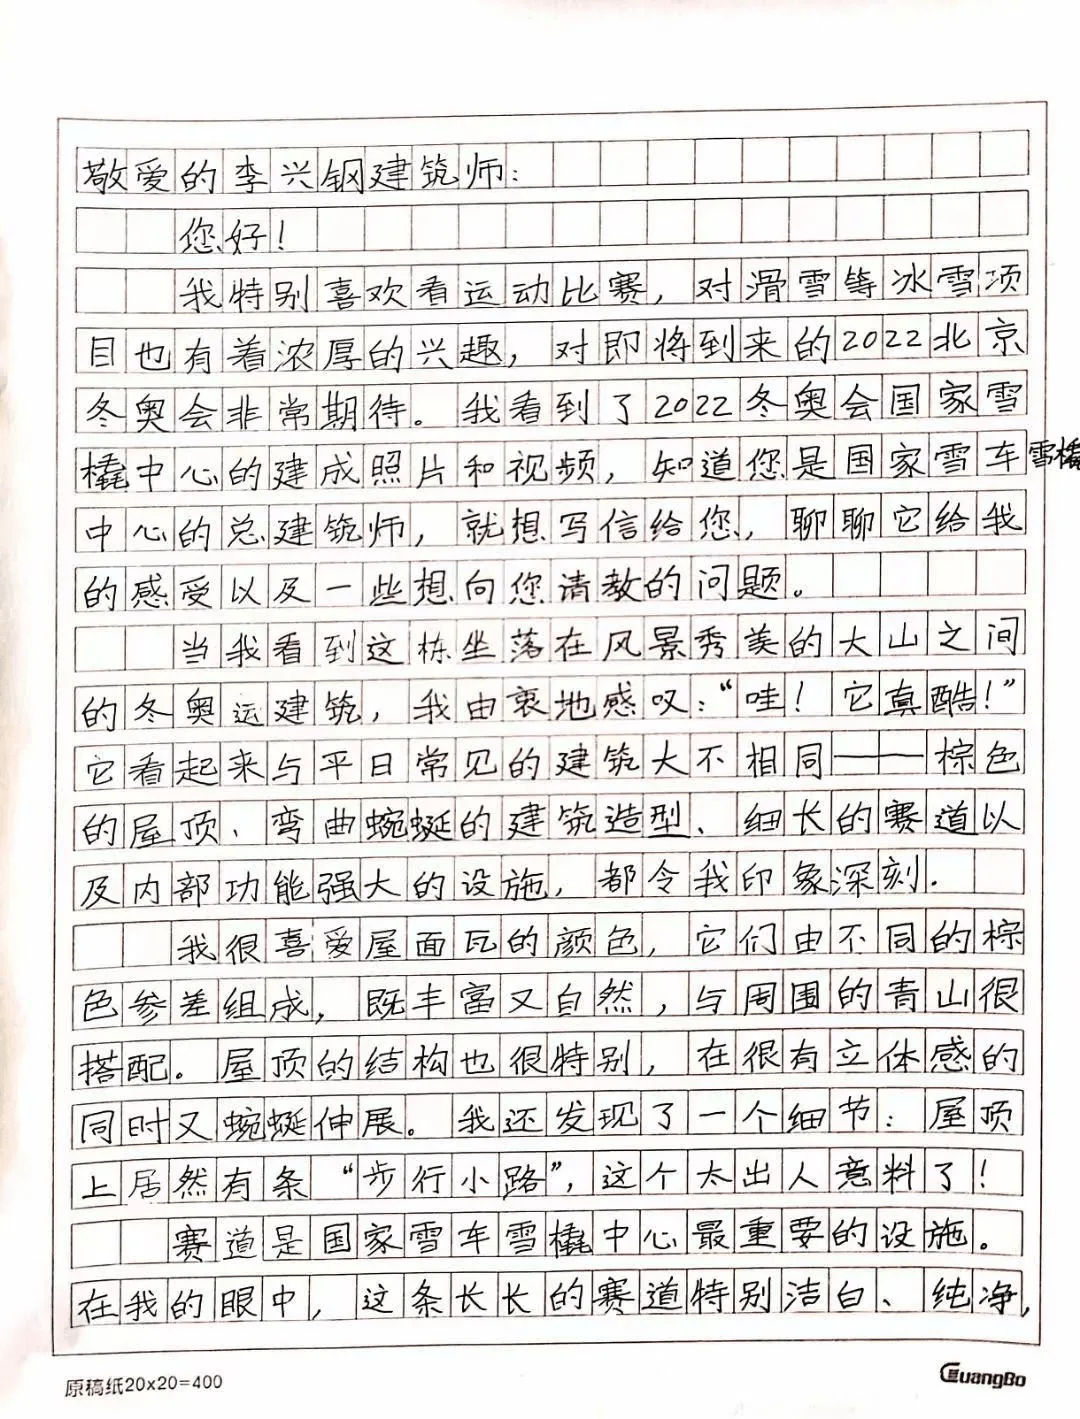 敬爱的李兴钢建筑师：
您好！
我特别喜欢看运动比赛，对滑雪等冰雪项
目也有着浓厚的兴趣，对即将到来的2022北京
冬奥会非常期待。我看到了2022冬奥会国家雪
橇中心的建成照片和视频，知道您是国家雪车雪橇
中心的总建筑师，就想写信给您，聊聊它给我
的感受以及一些想向您请教的问题。
当我看到这栋坐落在风景秀美的大山之间
的冬奥运建筑，我由衷地感叹：“哇！它真酷！”
它看起来与平日常见的建筑大不相同——棕色
的屋顶、弯曲蜿蜒的建筑造型、细长的赛道以
及内部功能强大的设施，都令我印象深刻.
我很喜爱屋面瓦的颜色，它们由不同的棕
色参差组成，既丰富又自然，与周围的青山很
搭配。屋顶的结构也很特别，在很有立体感的
同时又蜿蜒伸展。我还发现了一个细节：屋顶
上居然有条“步行小路”，这个太出人意料了！
赛道是国家雪车雪橇中心最重要的设施。
在我的眼中，这条长长的赛道特别洁白、纯净，
原稿纸20x20=400
GuangBo